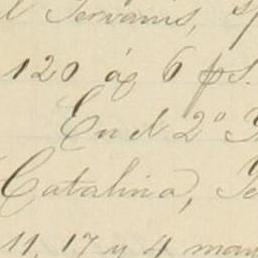 Servanis,
120 á 6 ps.
En el 2º
Catalina,
11, 17 y 4 may